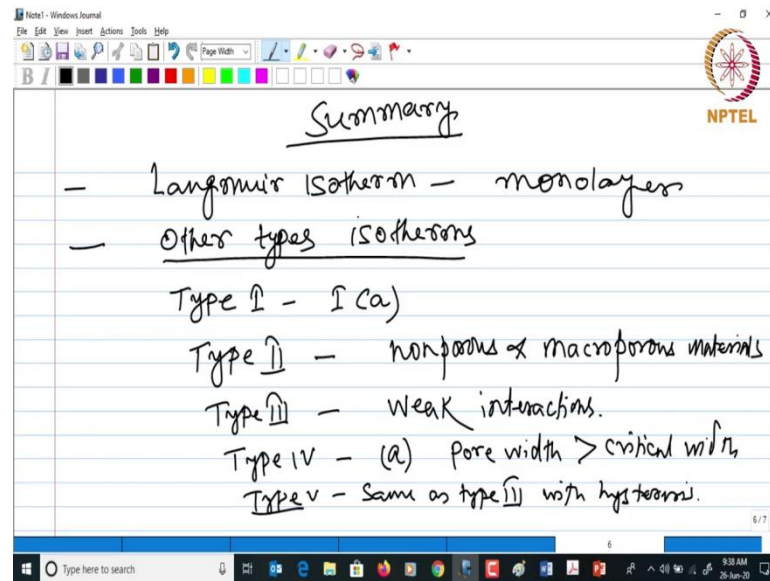 Note1 - Windows Journal
File Edit View Insert Actions Tools Help
Page Width
B I
NPTEL
Summary
- Langmuir isotherm - monolayer
- Other types isotherms
Type I - I (a)
Type II - nonporous & macroporous materials
Type III - Weak interactions.
Type IV - (a) Pore width > critical width
Type V - Same as type III with hysteresis.
6/7
6
Type here to search
9:38 AM
26-Jun-20